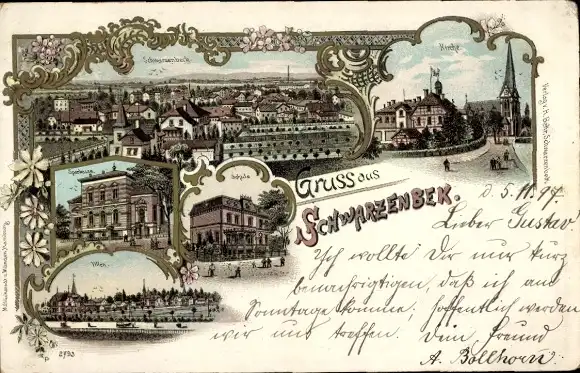 Schwarzenbek
Kirche
Verlag v. H.
Schwarzenbek
Sparkasse
Schule
Gruss aus
SCHWARZENBEK.
Villen
2793
d 5.11.97.
Lieber Gustav
Ich wollte Dir nur kurz
benachrigtigen, daß ich am
Sonntage komme; hoffentlich werden
wir uns treffen. Dein Freund
A. Bollhorn